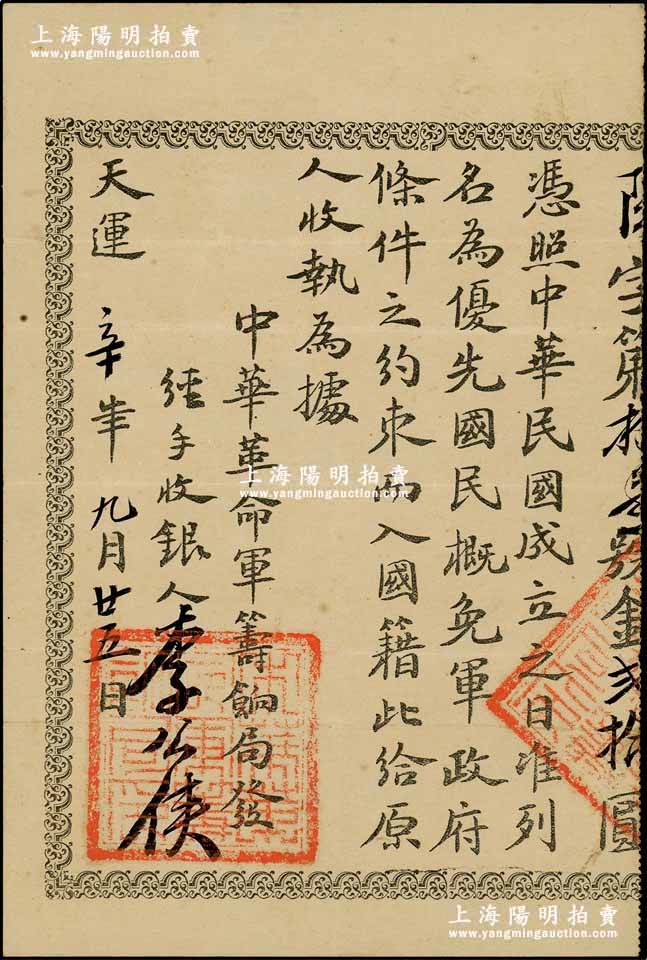 上海陽明拍賣
www.yangmingauction.com
字第 號金弍拾圓
憑照中華民國成立之日准列
名為優先國民概免軍政府
條件之約束而入國籍此給原
人收執為據
中華革命軍籌餉局發
經手收銀人李公俠
天運 辛 年 九月廿五日
上海陽明拍賣
www.yangmingauction.com
上海陽明拍賣
www.yangmingauction.com